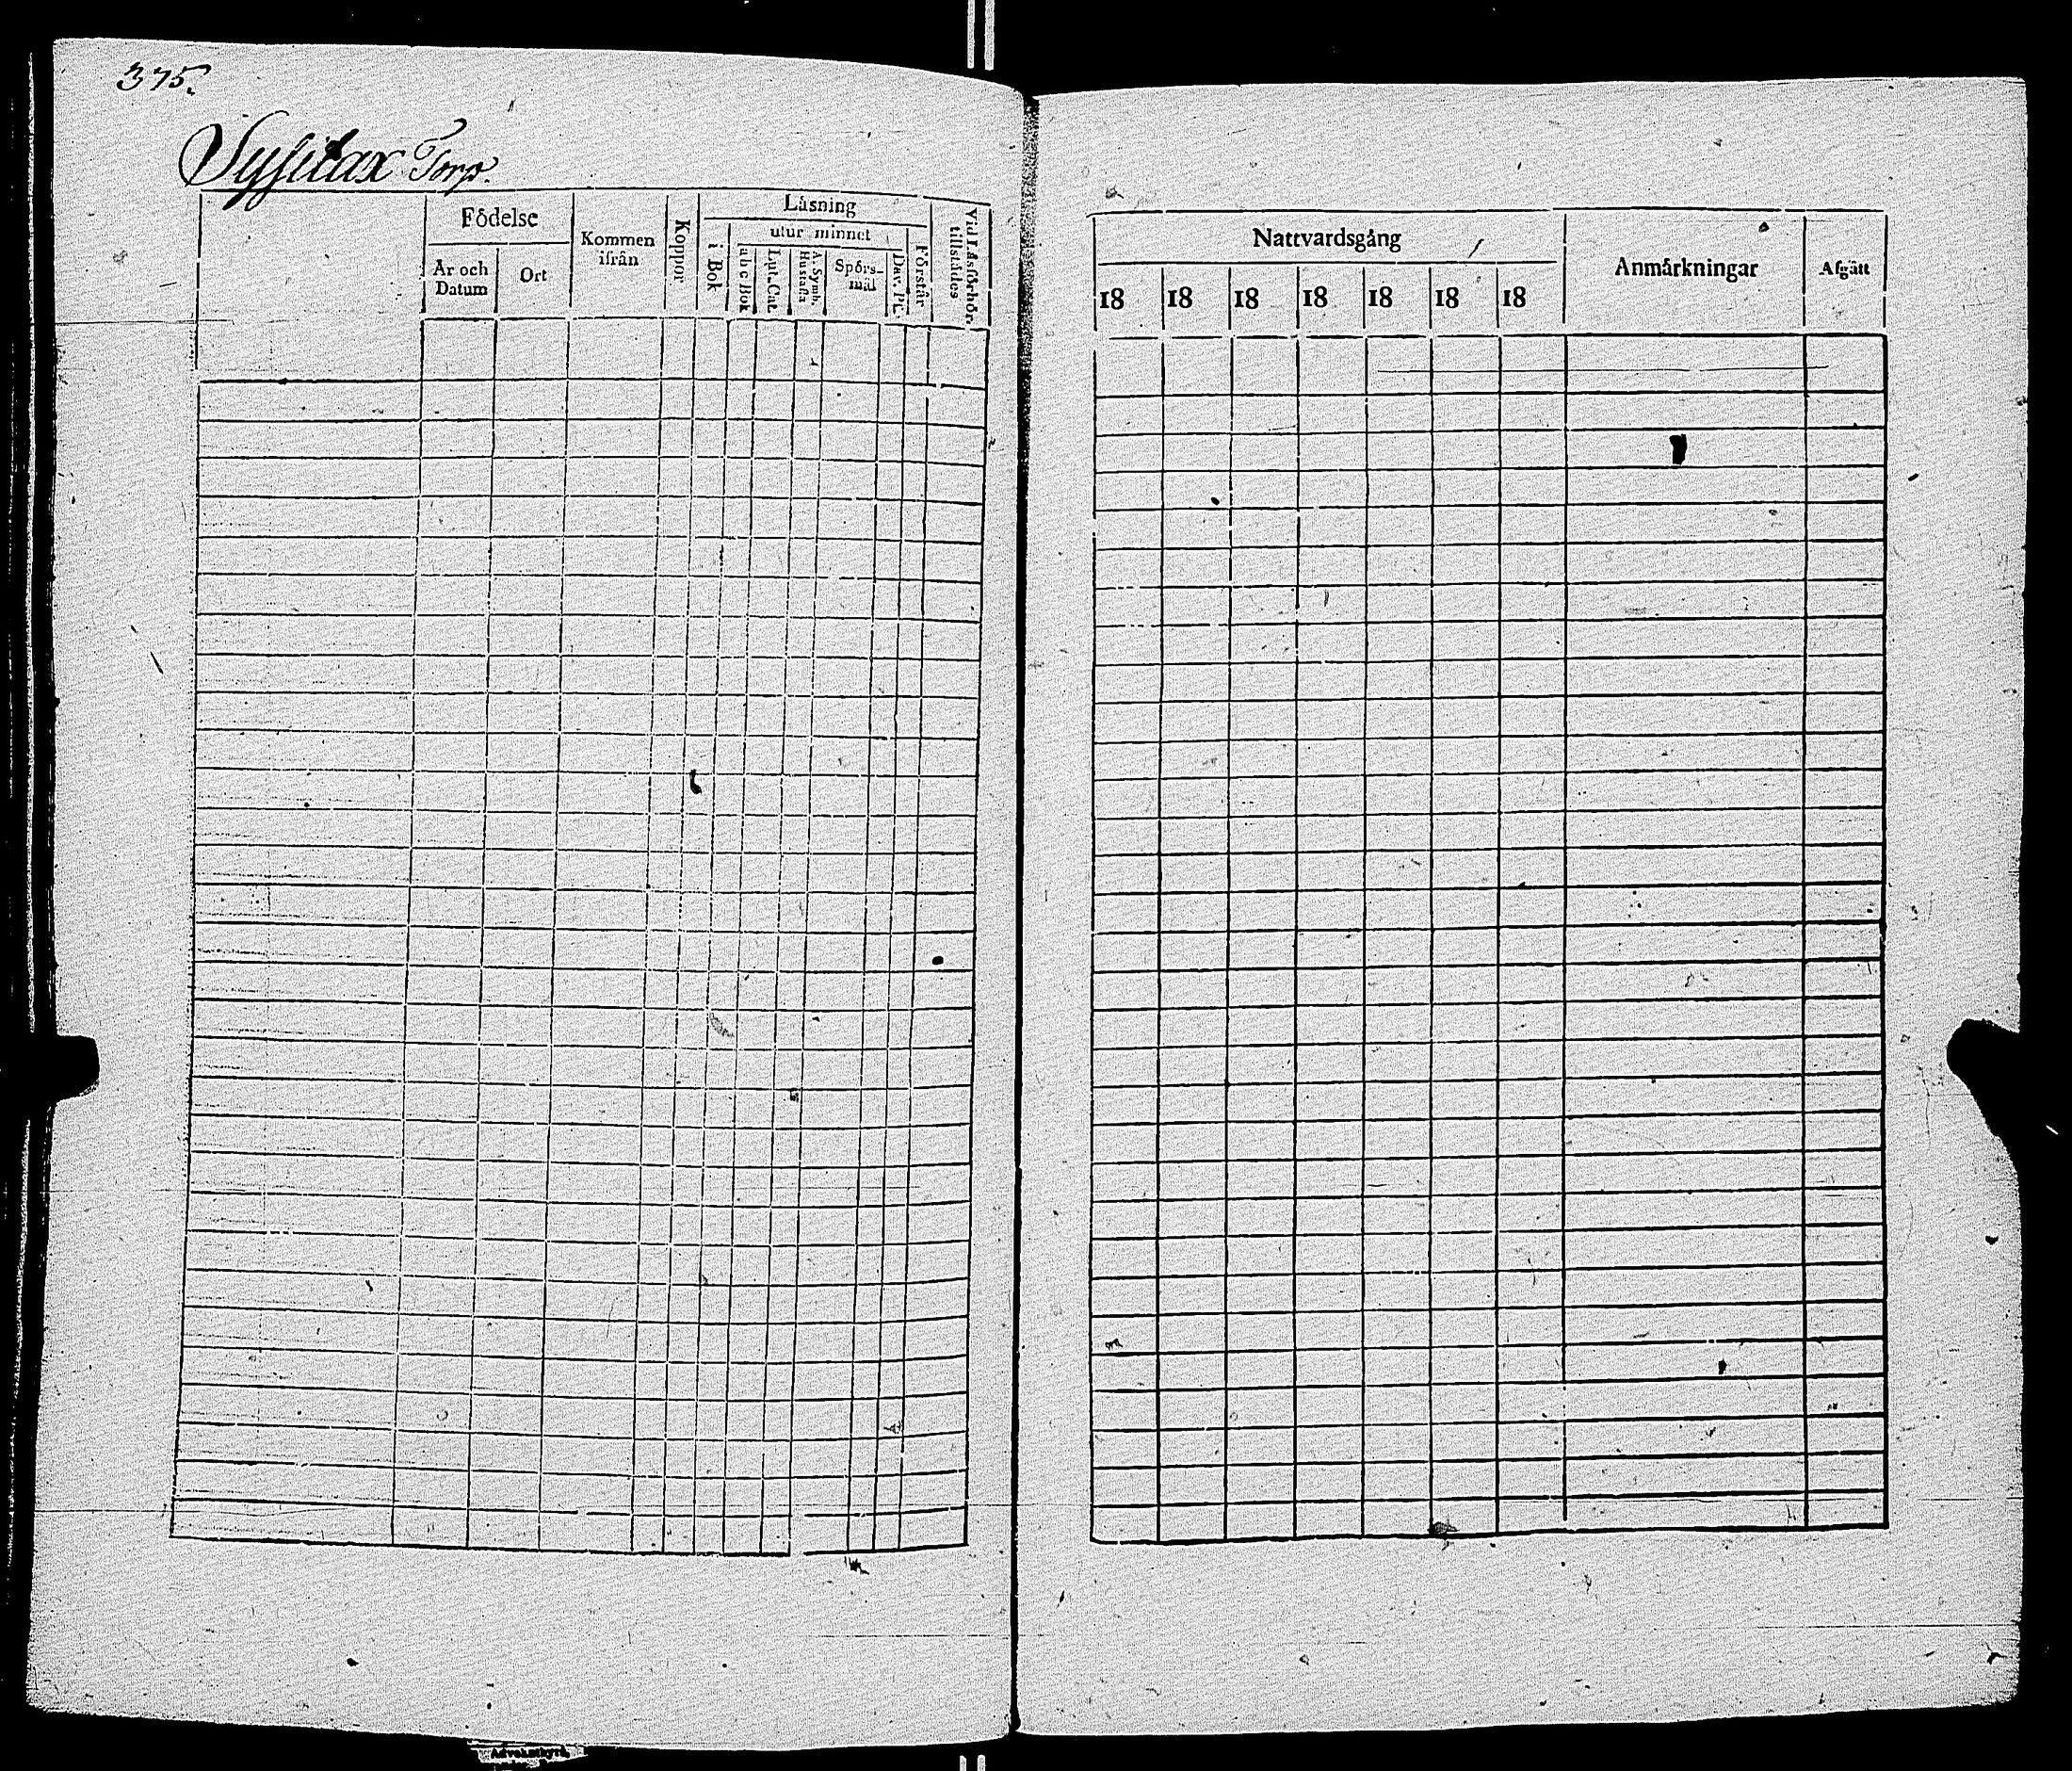 375.
Torp.
Födelse
År och Datum
Ort
Kommen ifrån
Koppor
Läsning
i Bok
utur minnet
ab c Bok
Lut. Cat.
A. Symb. Hustafla
Spörsmål
Dav. Ps.
Förstår
Vid Läsförhör. tillstådes
Nattvardsgång
18 18 18 18 18 18 18
Anmärkningar
Afgått